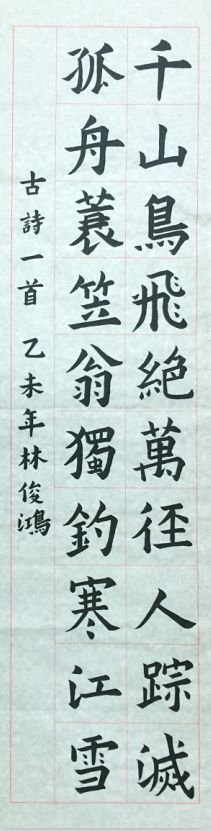 千山鳥飛絕萬徑人踪滅
孤舟蓑笠翁獨釣寒江雪
古詩一首 乙未年林俊鴻